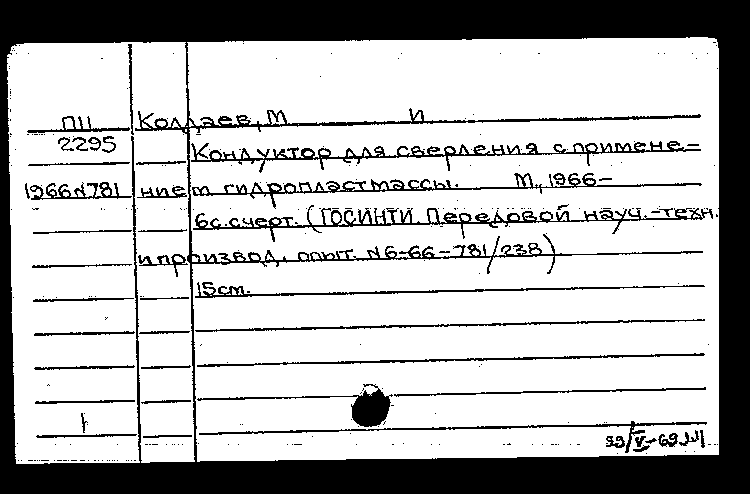 П11 Колдаев, М И
2295 Кондуктор для сверления с примене=
1966 N 781 нием гидропластмассы. М., 1966-
6с.счерт. (ГОСИНТИ. Передовой науч.-техн.
и производ. опыт. N 6-66-781/238)
15см.